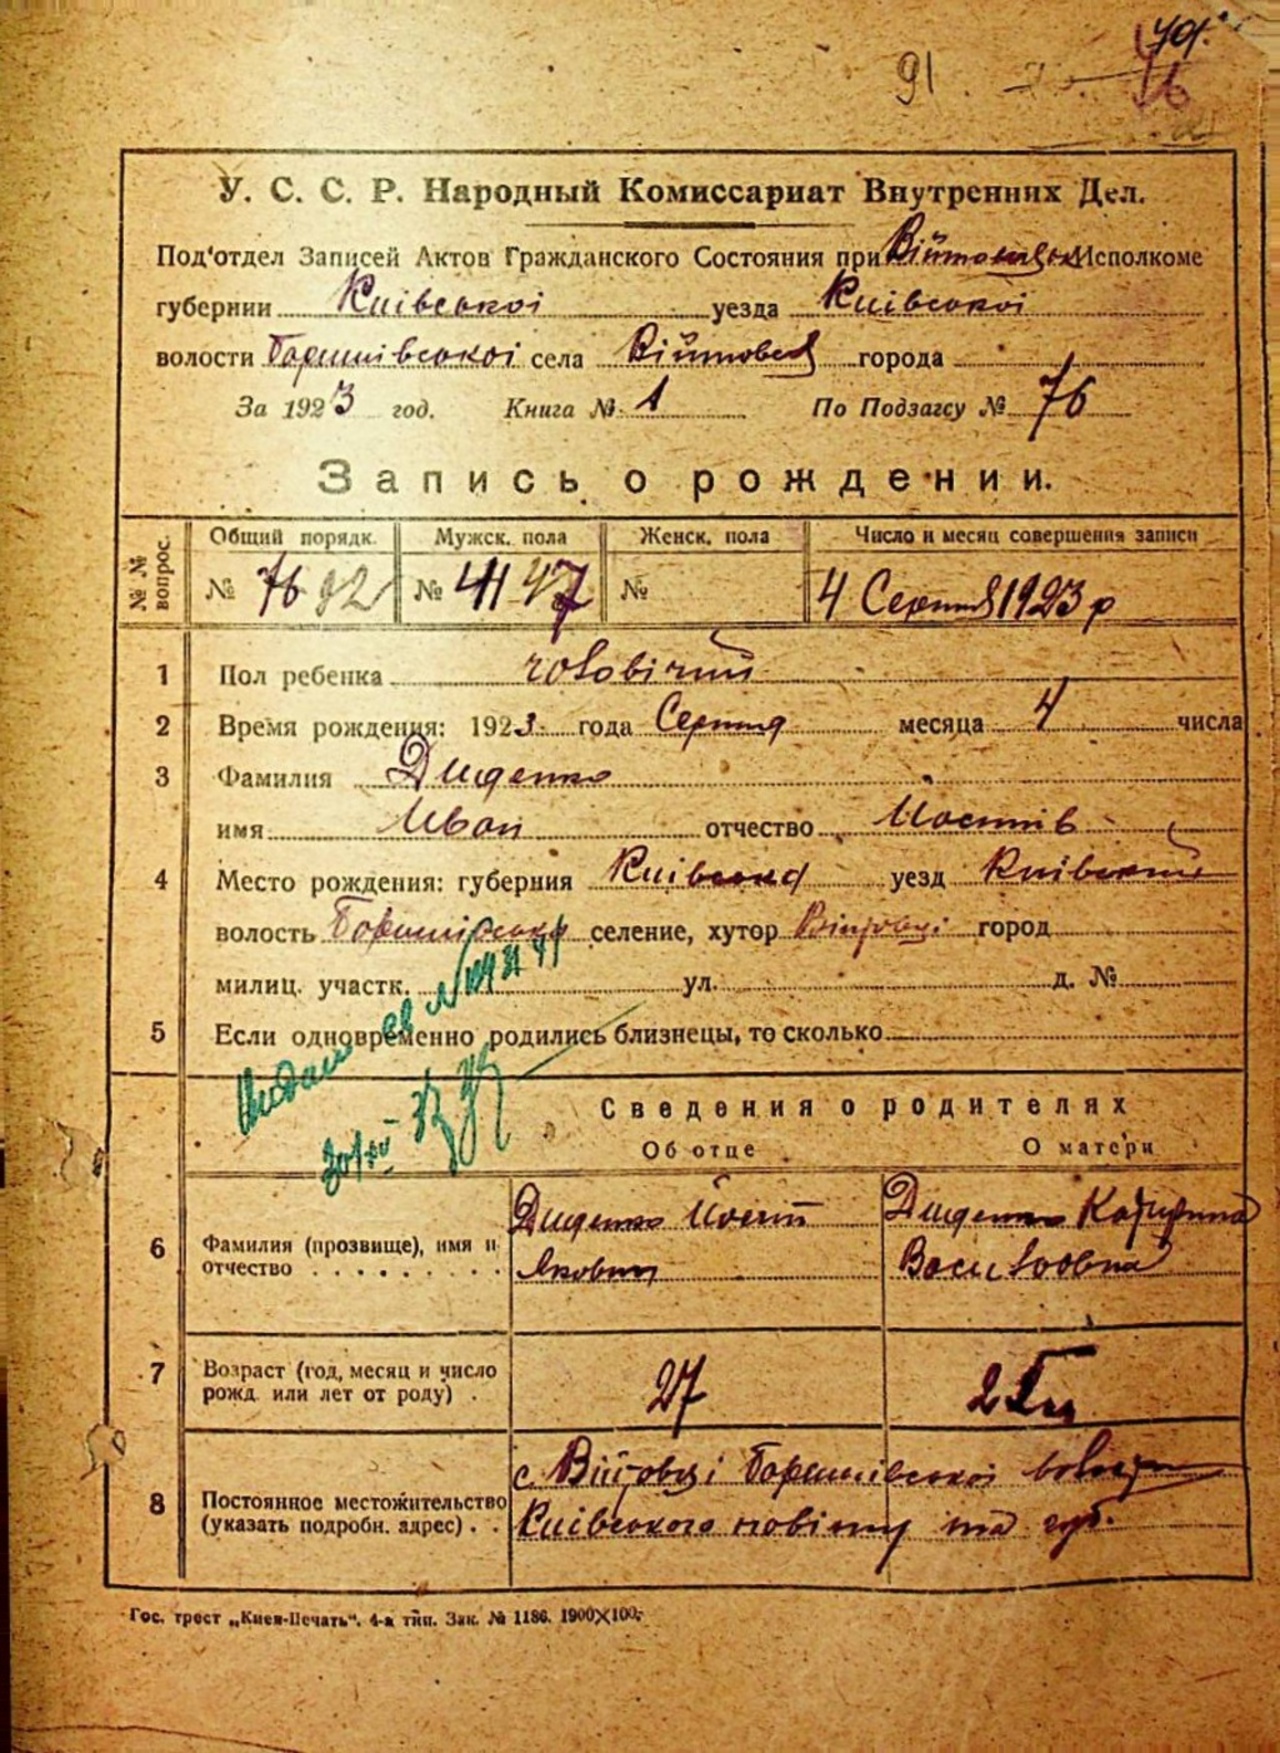 91
У. С. С. Р. Народный Комиссариат Внутренних Дел.
Под'отдел Записей Актов Гражданского Состояния при Исполкоме
губернии Київської уезда Київської
волости села города
За 1923 год. Книга № 1 По Подзагсу № 76
Запись о рождении.
№ № вопрос.
Общий порядк. Мужск. пола Женск. пола Число и месяц совершения записи
№ 76 92 № 41 47 № 4 Серпня 1923 р
1 Пол ребенка чоловічий
2 Время рождения: 1923 года Серпня месяца 4 числа
3 Фамилия Дищенко
имя Иван отчество
4 Место рождения: губерния Київська уезд Київский
волость селение, хутор Війтовці город
милиц. участк. ул. д. №
5 Если одновременно родились близнецы, то сколько
Сведения о родителях
Об отце О матери
6 Фамилия (прозвище), имя и отчество Дищенко Якович Дищенко Катерина
7 Возраст (год, месяц и число рожд. или лет от роду) 27
8 Постоянное местожительство (указать подробн. адрес) с. Війтовці волости
Київського повіту та губ.
Гос. трест „Киев-Печать". 4-я тип. Зак. № 1186. 1900×100.